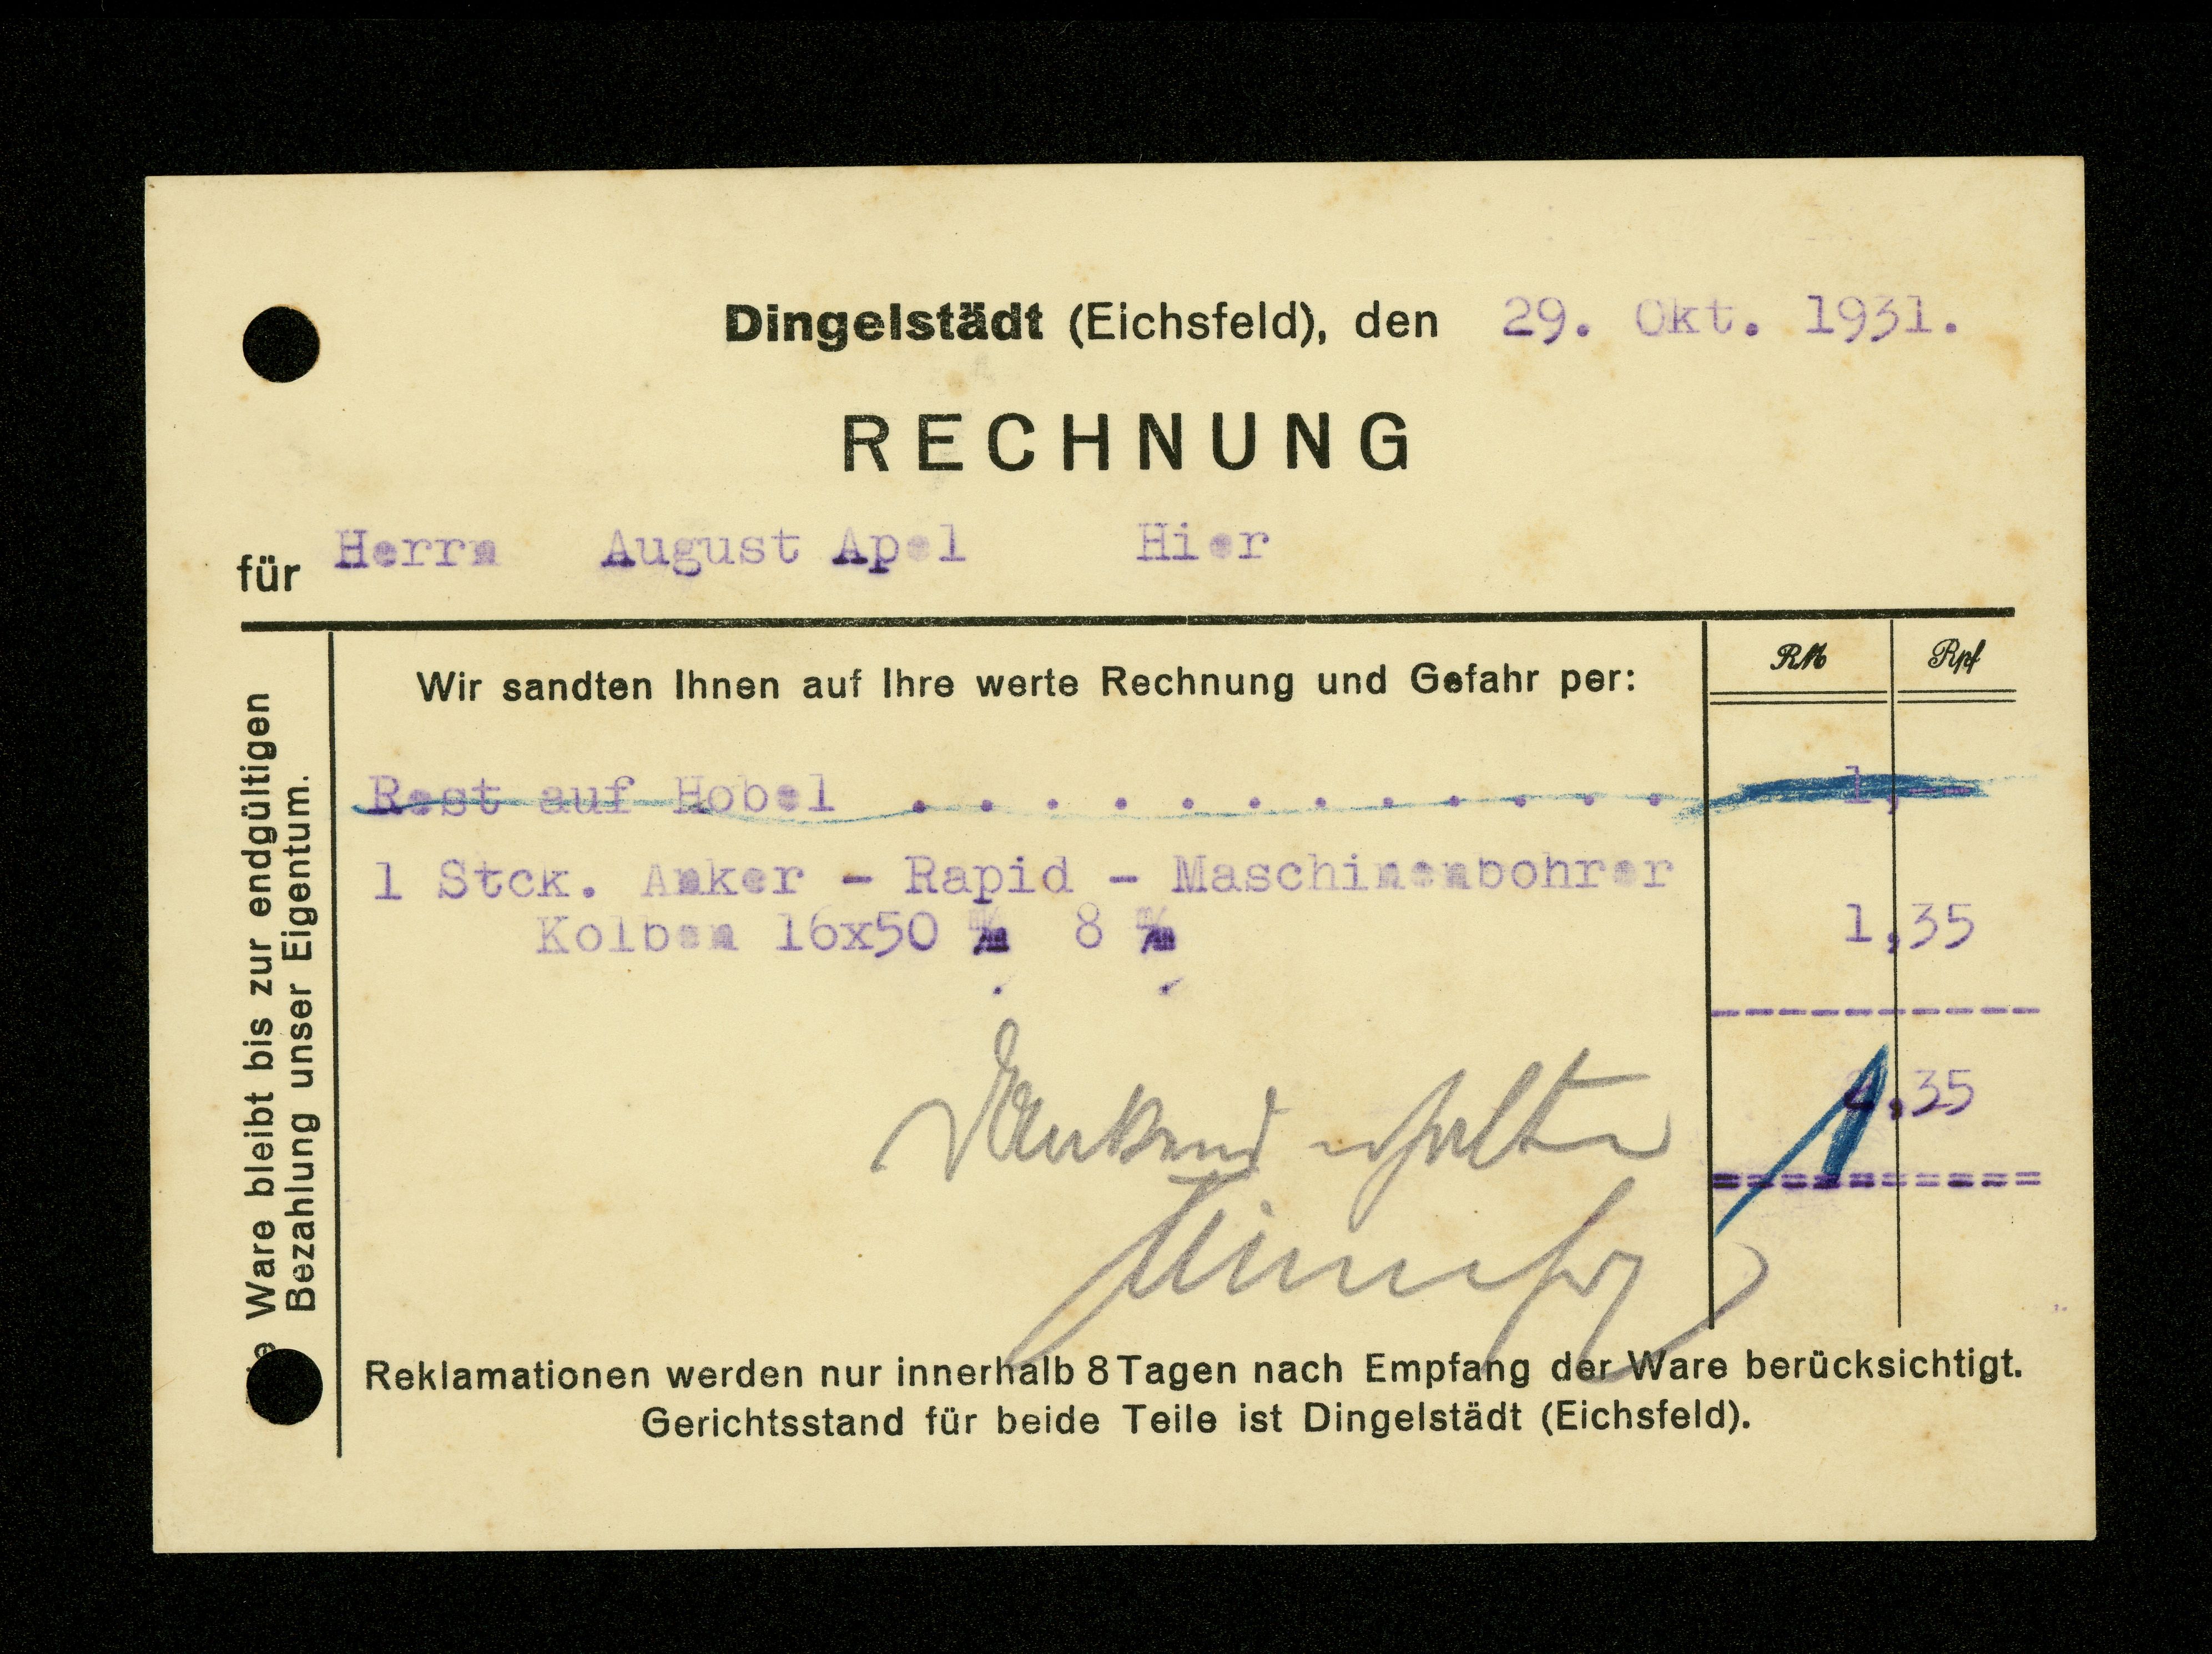 Dingelstädt (Eichsfeld), den 29. Okt. 1931.
RECHNUNG
für Herrn August Apel Hier
Wir sandten Ihnen auf Ihre werte Rechnung und Gefahr per: RM Rpf
Rest auf Hobel . . . . . . . . . . . . 1,--
1 Stck. Anker - Rapid - Maschinenbohrer
Kolben 16x50 m/m 8 m/m 1,35
2,35
1
Dankend erhalten
Ware bleibt bis zur endgültigen
Bezahlung unser Eigentum.
Reklamationen werden nur innerhalb 8 Tagen nach Empfang der Ware berücksichtigt.
Gerichtsstand für beide Teile ist Dingelstädt (Eichsfeld).